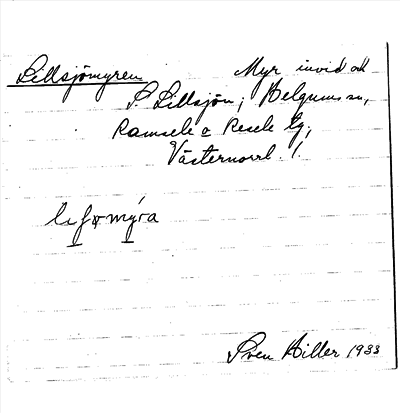 Lillsjömyren Myr invid och
S. Lillsjön, Helgums sn,
Ramsele o Resele tg,
Västernorrl. l.
Sven Hiller 1933